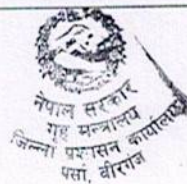 नेपाल सरकार
गृह मन्त्रालय
जिल्ला प्रशासन कार्यालय
पर्सा, वीरगंज